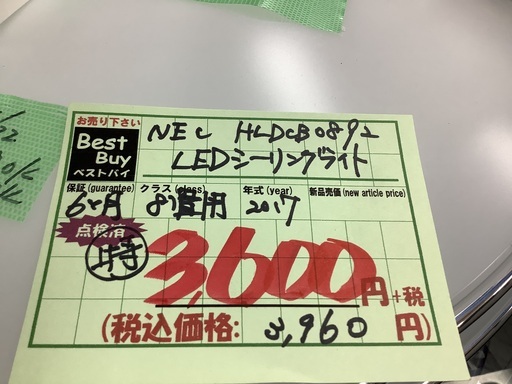 お売り下さい
Best Buy
ベストバイ
NEC HLDCB0892
LEDシーリングライト
保証(guarantee) クラス(class) 年式(year) 新品売価(new article price)
6ヶ月 8畳用 2017
点検済
特
3,600円+税
(税込価格: 3,960 円)